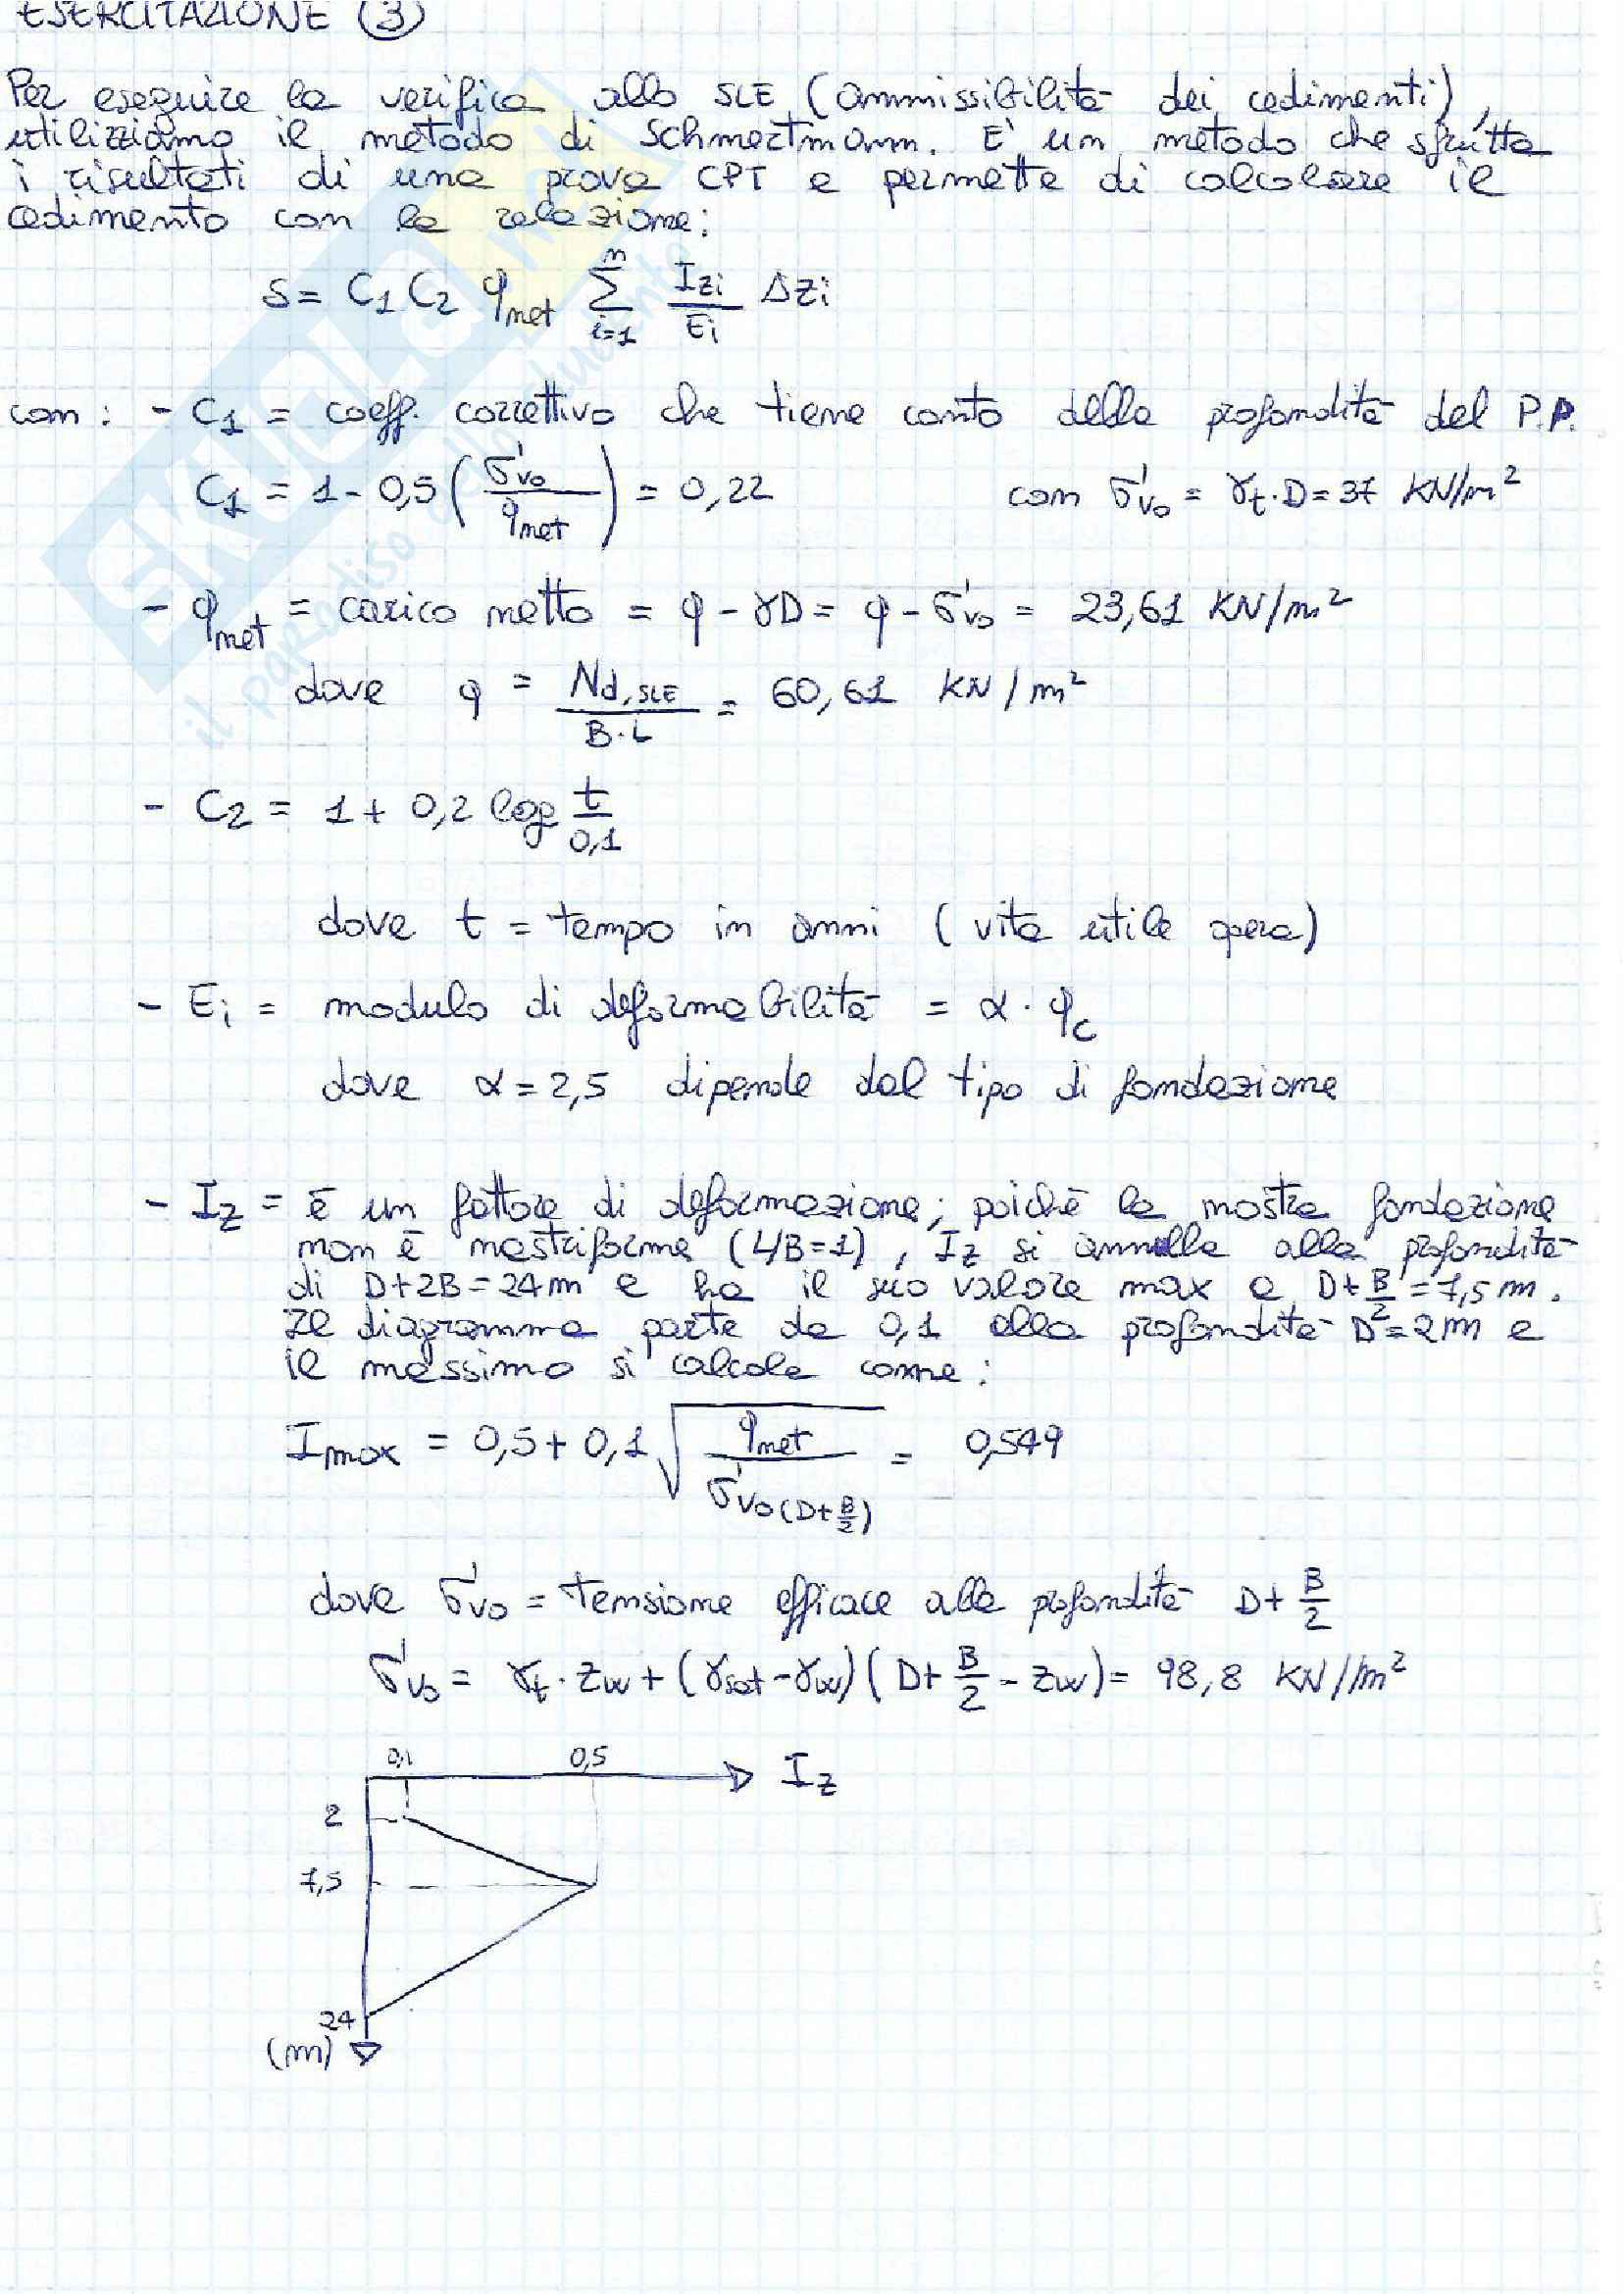 ESERCITAZIONE (3)
Per eseguire la verifica allo SLE (ammissibilità dei cedimenti),
utilizziamo il metodo di Schmertmann. E' un metodo che sfrutta
i risultati di una prova CPT e permette di calcolare il
cedimento con la relazione:
S = C1 C2 qnet Σ(i=1, n) Izi/Ei Δzi
con: - C1 = coeff. correttivo che tiene conto della profondità del P.P.
C1 = 1 - 0,5 (σ'vo/qnet) = 0,22 con σ'vo = γt·D = 37 KN/m²
- qnet = carico netto = q - γD = q - σ'vo = 23,61 KN/m²
dove q = Nd,SLE/B·L = 60,61 KN/m²
- C2 = 1 + 0,2 log t/0,1
dove t = tempo in anni (vita utile opera)
- Ei = modulo di deformabilità = α · qc
dove α = 2,5 dipende dal tipo di fondazione
- Iz = è un fattore di deformazione; poichè la nostra fondazione
non è nastriforme (L/B=1), Iz si annulla alla profondità
di D+2B = 24m e ha il suo valore max a D+B/2 = 7,5 m.
Il diagramma parte da 0,1 alla profondità D=2m e
il massimo si calcola come:
Imax = 0,5 + 0,1 √(qnet/σ'vo(D+B/2)) = 0,549
dove σ'vo = tensione efficace alla profondità D+B/2
σ'vo = γt·zw + (γsat-γw)(D+B/2-zw) = 98,8 KN/m²
0,1 0,5 Iz
2
7,5
24
(m)
SKUOLA.net
il paradiso dello studente